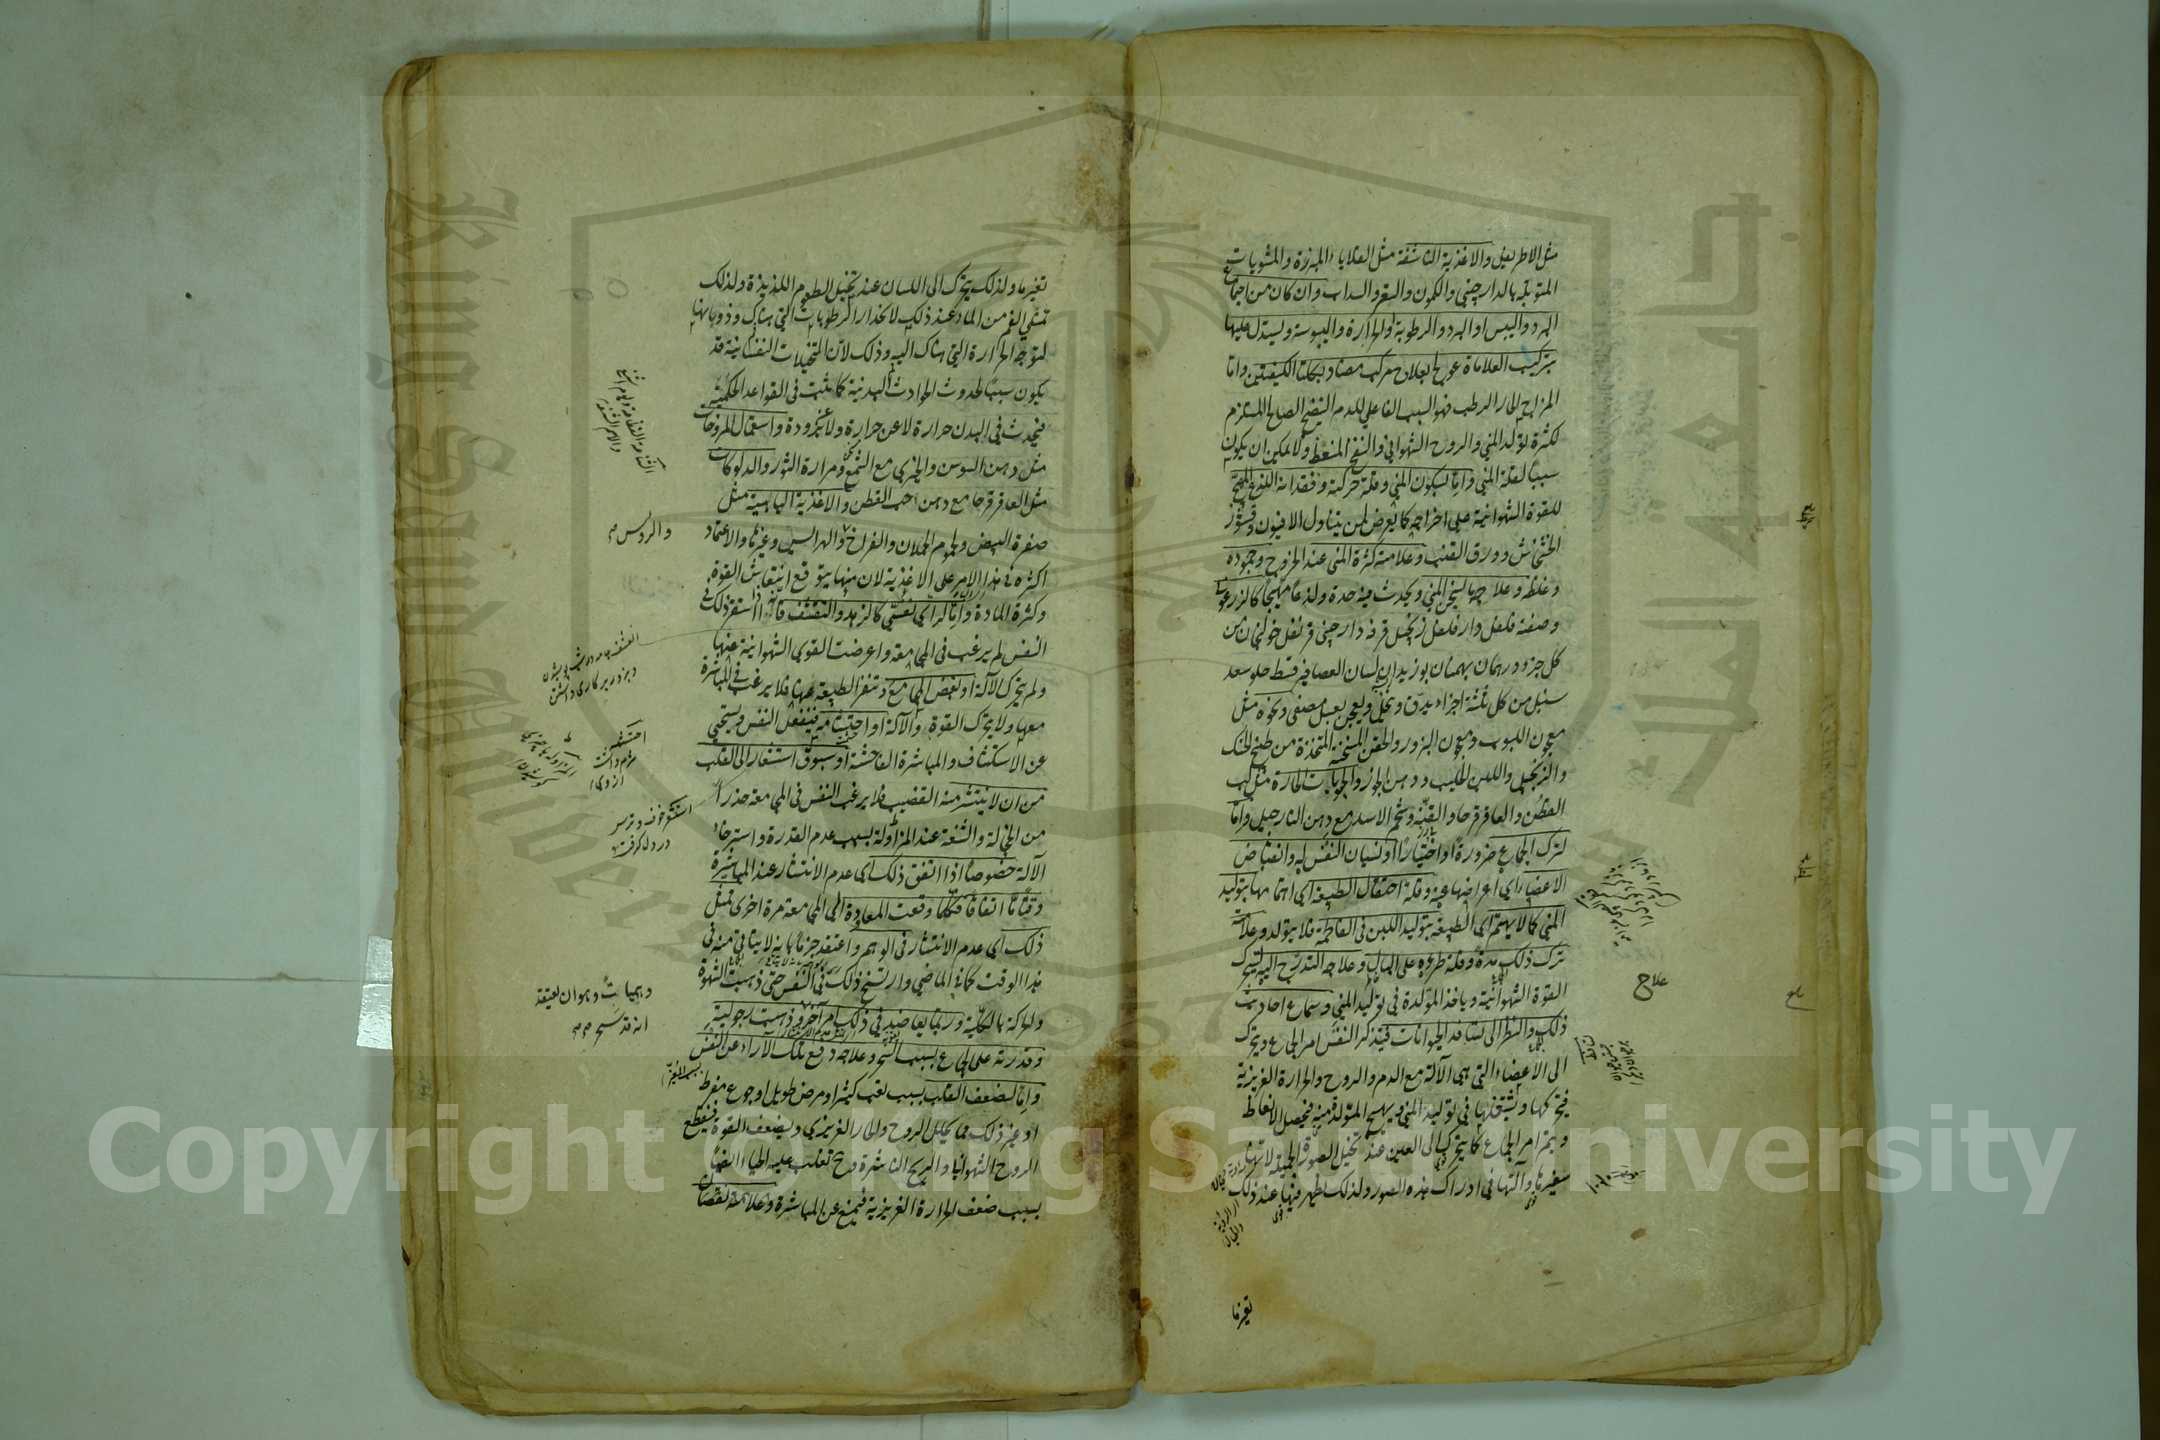 مثل الاطريفل والاغذية الناشفة مثل القلايا المبزرة والمشويات
المتوبلة بالدارچيني والكمون والسعتر والسداب وان كان من اجتماع
البرد واليبس او البرد والرطوبة او الحرارة واليبوسة ويستدل عليها
بتركيب العلامات عولج بعلاج مركب مضاد لكلتا الكيفيتين واما
المزاج الحار الرطب فهو السبب الفاعلي للدم النضيج الصالح المستلزم
لكثرة تولد المني والروح الشهواني والنفخ المنعظ ولا يمكن ان يكون
سببا لقلة المني واما لسكون المني وقلة حركته وفقدانه اللذع المهيج
للقوة الشهوانية على اخراجه كما يعرض لمن يتناول الافيون وقشور
الخشخاش وورق القنب وعلامته كثرة المني عند الخروج وجموده
وغلظه وعلاجه ما يسخن المني ويحدث فيه حدة ولذعا مهيجا كالزرعوني
وصفته فلفل دارفلفل زنجبيل قرفه دارچيني قرنفل خولنجان من
كل جزو درهمان بهمنان بوزيدان لسان العصافير قسط حلو سعد
سنبل من كل ثلثة اجزاء يدق وينخل ويعجن بعسل مصفى ونحوه مثل
معجون اللبوب ومعجون البزور والحقن المسخنة المتخذة من طبيخ الحسك
والزنجبيل واللبن الحليب ودهن الجوز والحمولات الحارة مثل لب
القطن والعاقرقرحا والقنه وشحم الاسد مع دهن النارجيل واما
لترك الجماع ضرورة او اختيارا او نسيان النفس له وانقباض
الاعضاء اي اعراضها عنه وقلة احتفال الطبيعة اي اهتمامها بتوليد
المني كما لا يهتم اي الطبيعة بتوليد اللبن في الفاطمة فلا يتولد وعلامته
ترك ذلك مدة وقلة طروه على البال وعلاجه التدرج اليه ليتحرك
القوة الشهوانية وياخذ المولدة في توليد المني وسماع احاديث
ذلك والنظر الى تسافد الحيوانات فيتذكر النفس امر الجماع ويتحرك
الى الاعضاء التي هي آلاته مع الدم والروح والحرارة الغريزية
فيحركها ويشغلها في توليد المني ويهيج المتولد منه فيحصل الانعاظ
ويتم امر الجماع كما يتحرك الى العين عند تخيل الصور الجميلة لانها
سفيرها وآلتها في ادراك هذه الصور ولذلك يظهر فيها عند ذلك
علاج
تغيرما
تغيرما ولذلك يتحرك الى اللسان عند تخيل الطعوم اللذيذة ولذلك
تمتلي الفم من الماء عند ذلك لانحدار الرطوبات التي هناك وذوبانها
لتوجه الحرارة التي هناك اليه وذلك لان التخيلات النفسانية قد
يكون سببا لحدوث الحوادث البدنية كما ثبت في القواعد الحكمية
فيحدث في البدن حرارة لا عن حرارة ولا عن برودة واستعمال المروخات
مثل دهن السوسن والخيري مع الشمع ومرارة الثور والدلوكات
مثل العاقرقرحا مع دهن حب القطن والاغذية الباهية مثل
صفرة البيض ولحوم الحملان والفراخ والهرايس وغيرها والاعتماد
اكثره في هذا الامر على الاغذية لان منها يتوقع انتعاش القوة
وكثرة المادة واما لراي نفسي كالزهد والتقشف فانه اذا استقر ذلك في
النفس لم يرغب في المجامعة واعرضت القوى الشهوانية عنها
ولم يتحرك الآلة او لبغض المجامع وتنفر الطبيعة عنها فلا يرغب في المباشرة
معها ولا يتحرك القوة والآلة او احتشامه فينفعل النفس ويستحيي
عن الاستكشاف والمباشرة الفاحشة او سبوق استشعار الى القلب
من ان لا ينتشر منه القضيب فلا يرغب النفس في المجامعة حذرا
من الخجلة والشنعة عند المزاولة بسبب عدم القدرة واسترخاء
الآلة خصوصا اذا اتفق ذلك اي عدم الانتشار عند المباشرة
وقتا ما اتفاقا فكلما وقعت المعاودة الى المجامعة مرة اخرى تمثل
ذلك اي عدم الانتشار في الوهم واعتقد جزما بانه لا يتأتى منه في
هذا الوقت كما في الماضي وارتسخ ذلك في النفس حتى ذهبت الشهوة
والحركة بالكلية وربما يعاضد في ذلك امر آخر وذهبت رجوليته
وقدرته على الجماع بسبب السحر وعلاجه دفع تلك الآراء عن النفس
واما لضعف القلب بسبب تعب كثير او مرض طويل او جوع مفرط
او غير ذلك مما يحلل الروح والحار الغريزي ويضعف القوة فينقطع
الروح الشهواني والريح الناشرة وح تغلب عليه الحياء ايضا
بسبب ضعف الحرارة الغريزية فيمنع عن المباشرة وعلامته نقصان
والروس م
احتشام شرم داشتن از وي
وهميات وهو ان يعتقد
انه قد سحر م م